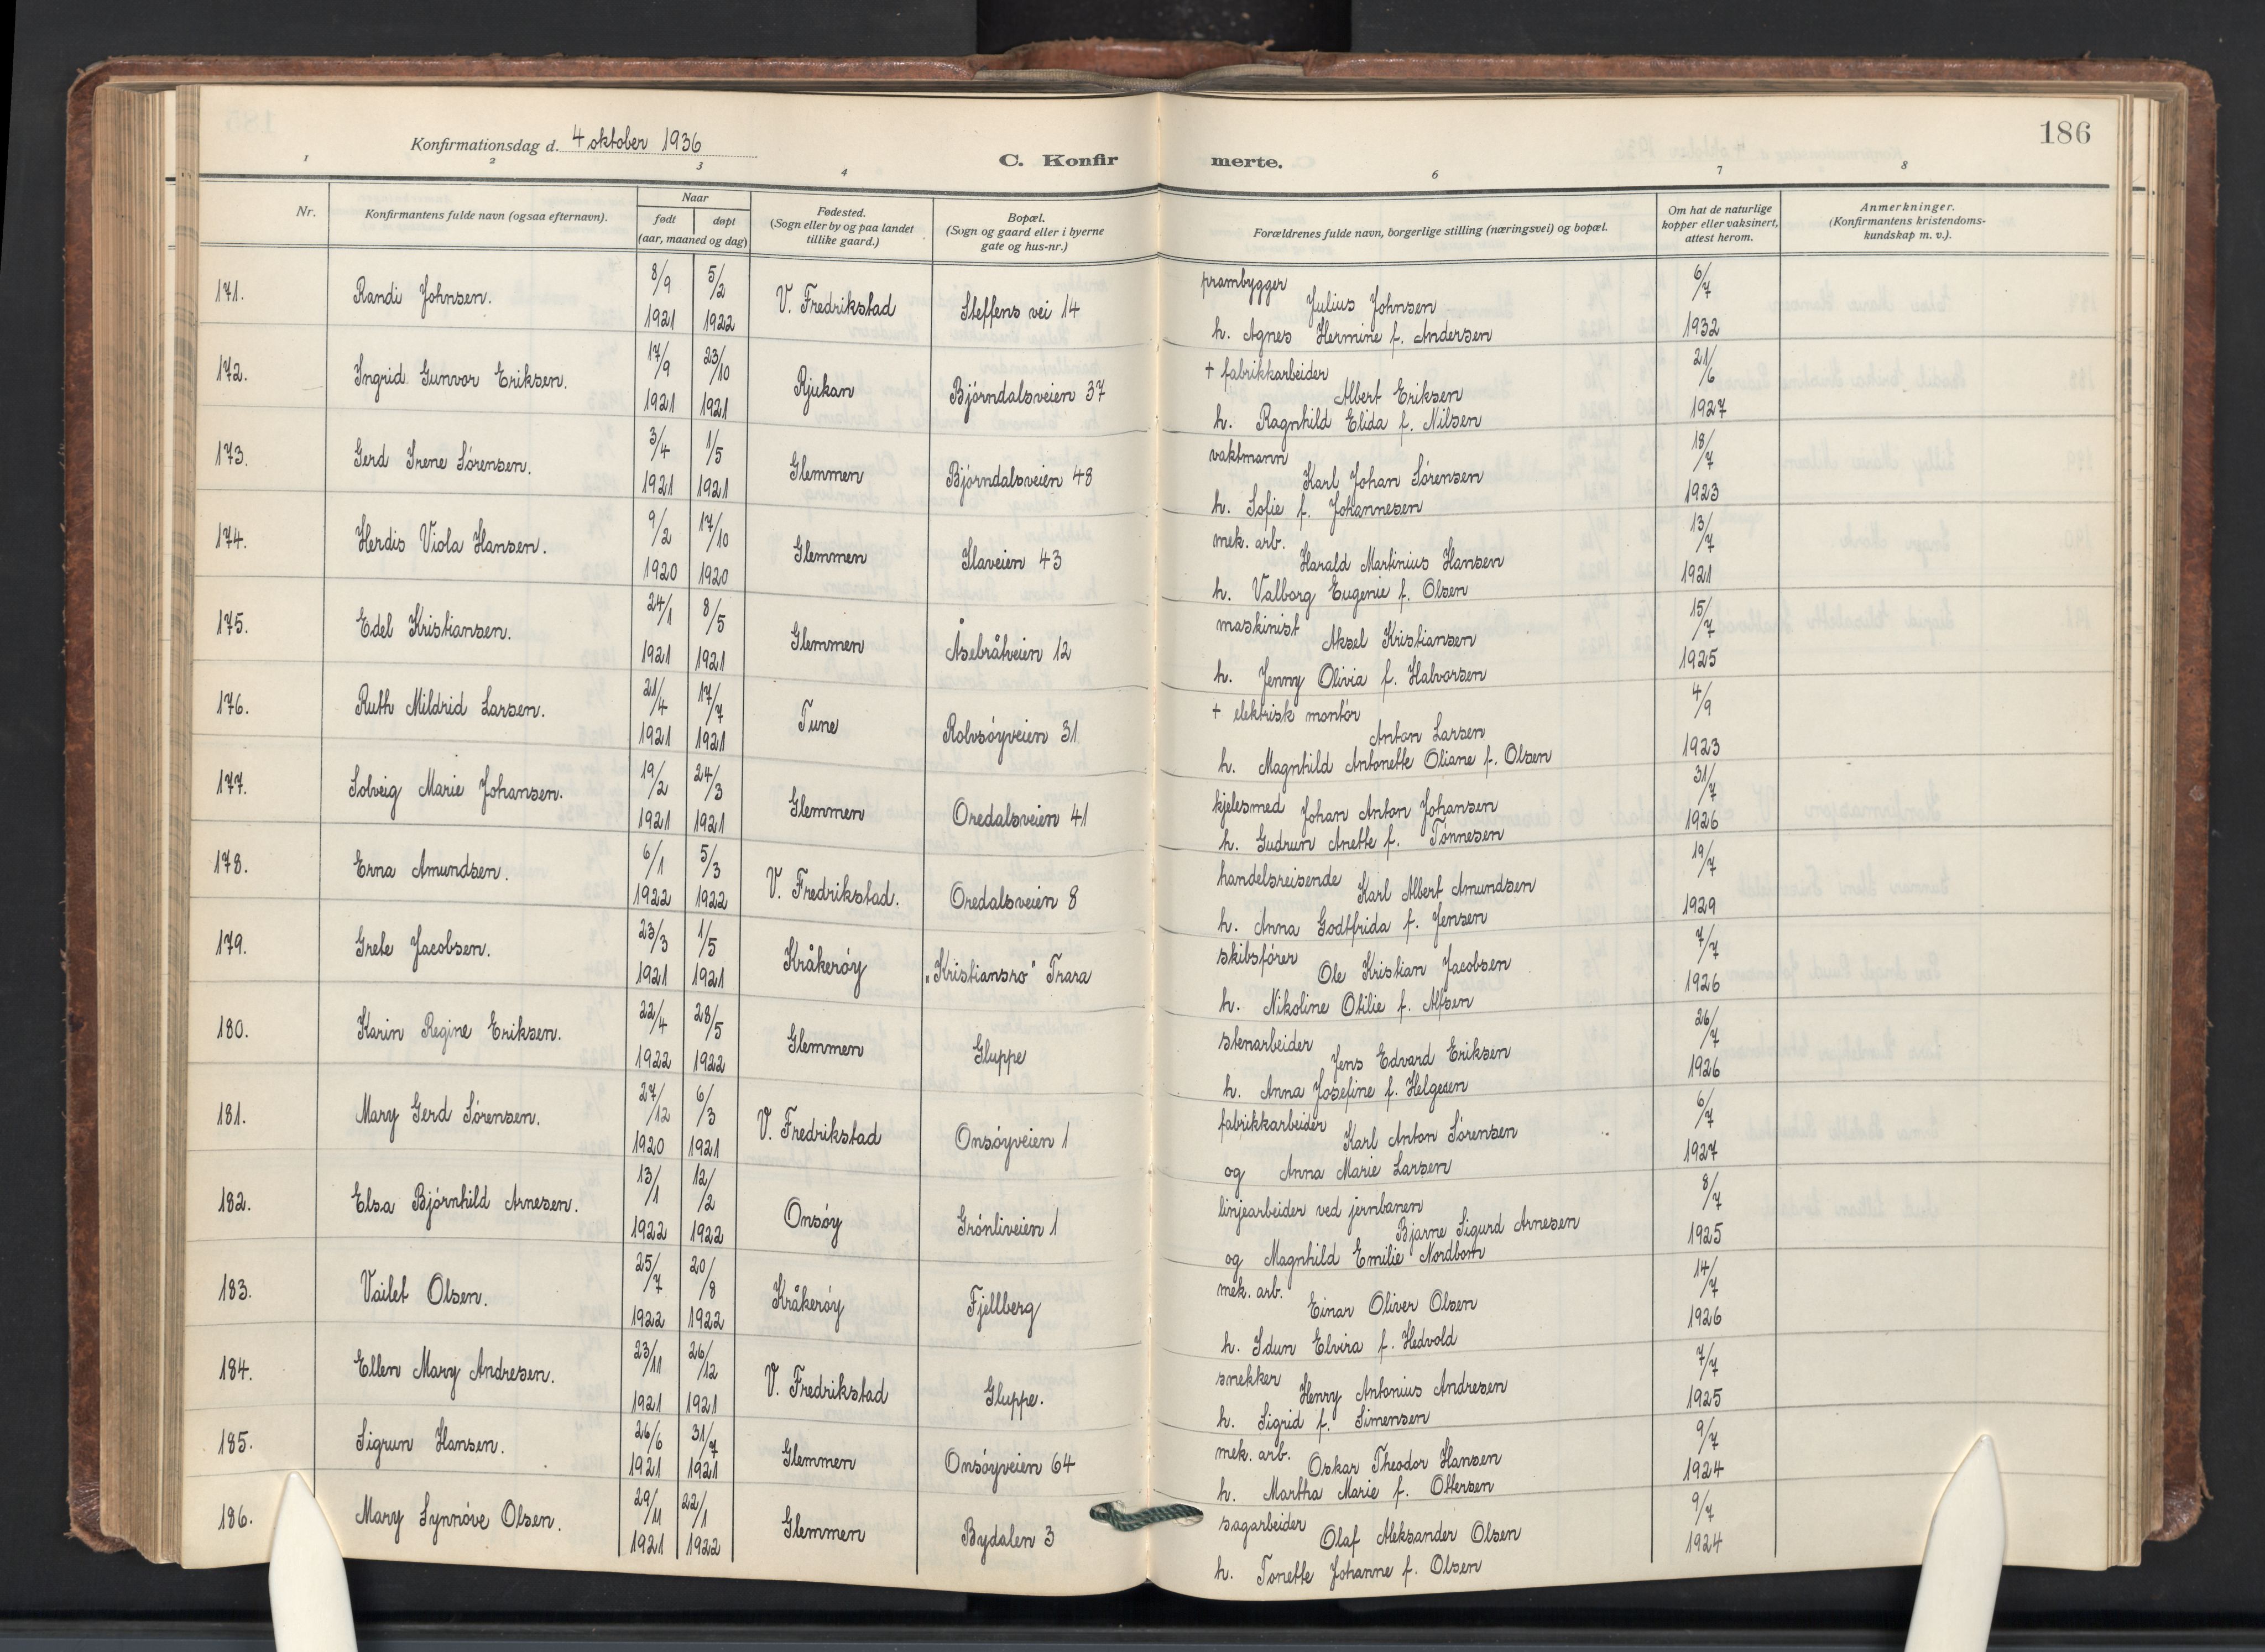 186
Konfirmationsdag d. 4 oktober 1936
C. Konfirmerte.
1 2 3 4 6 7 8
Nr.
Konfirmantens fulde navn (ogsaa efternavn).
Naar
født døpt
(aar, maaned og dag)
Fødested.
(Sogn eller by og paa landet
tillike gaard.)
Bopæl.
(Sogn og gaard eller i byerne
gate og hus-nr.)
Forældrenes fulde navn, borgerlige stilling (næringsvei) og bopæl.
Om hat de naturlige
kopper eller vaksinert,
attest herom.
Anmerkninger.
(Konfirmantens kristendoms-
kundskap m. v.).
171. Randi Johnsen. 8/9 1921 5/2 1922 V. Fredrikstad Steffens vei 14
prambygger
Julius Johnsen
h. Agnes Hermine f. Andersen
6/7 1932
172. Ingrid Gunvor Eriksen. 17/9 1921 23/10 1921 Rjukan Bjørndalsveien 37
+ fabrikkarbeider
Albert Eriksen
h. Ragnhild Elida f. Nilsen
21/6 1927
173. Gerd Irene Sørensen. 3/4 1921 1/5 1921 Glemmen Bjørndalsveien 48
vaktmann
Karl Johan Sørensen
h. Sofie f. Johannesen
18/7 1923
174. Herdis Viola Hansen. 9/2 1920 17/10 1920 Glemmen Ilaveien 43
mek. arb.
Harald Martinius Hansen
h. Valborg Eugenie f. Olsen
13/7 1921
175. Edel Kristiansen. 24/1 1921 8/5 1921 Glemmen Åsebråtveien 12
maskinist
Aksel Kristiansen
h. Jenny Olivia f. Halvorsen
15/7 1925
176. Ruth Mildrid Larsen. 21/4 1921 17/7 1921 Tune Rolvsøyveien 31
+ elektrisk montør
Anton Larsen
h. Magnhild Antonette Oliane f. Olsen
4/9 1923
177. Solveig Marie Johansen. 19/2 1921 24/3 1921 Glemmen Oredalsveien 41
kjelesmed Johan Anton Johansen
h. Gudrun Anette f. Tønnesen
31/7 1926
178. Erna Amundsen. 6/1 1922 5/3 1922 V. Fredrikstad. Oredalsveien 8
handelsreisende
Karl Albert Amundsen
h. Anna Godtfrida f. Jensen
19/7 1929
179. Grete Jacobsen. 23/3 1921 1/5 1921 Kråkerøy „Kristiansro" Trara
skibsfører
Ole Kristian Jacobsen
h. Nikoline Otilie f. Alfsen
7/7 1926
180. Karin Regine Eriksen. 22/4 1922 28/5 1922 Glemmen Gluppe
stenarbeider
Jens Edvard Eriksen
h. Anna Josefine f. Helgesen
26/7 1926
181. Mary Gerd Sørensen. 27/12 1920 6/3 1921 V. Fredrikstad Onsøyveien 1
fabrikkarbeider
Karl Anton Sørensen
og Anna Marie Larsen
6/7 1927
182. Elsa Bjørnhild Arnesen. 13/1 1922 12/2 1922 Onsøy Grønliveien 1
linjearbeider ved jernbanen
Bjarne Sigurd Arnesen
og Magnhild Emilie Nordbom
8/7 1925
183. Vailet Olsen. 25/7 1922 20/8 1922 Kråkerøy Fjellberg
mek. arb.
Einar Oliver Olsen
h. Idun Elvira f. Hedvold
14/7 1926
184. Ellen Mary Andresen. 23/11 1921 26/12 1921 V. Fredrikstad Gluppe.
snekker
Henry Antonius Andresen
h. Sigrid f. Simensen
7/7 1925
185. Sigrun Hansen. 26/6 1921 31/7 1921 Glemmen Onsøyveien 64
mek. arb.
Oskar Theodor Hansen
h. Martha Marie f. Ottersen
9/7 1924
186. Mary Synnøve Olsen. 29/11 1921 22/1 1922 Glemmen Bydalen 3
sagarbeider
Olaf Aleksander Olsen
h. Tonette Johanne f. Olsen
9/7 1924